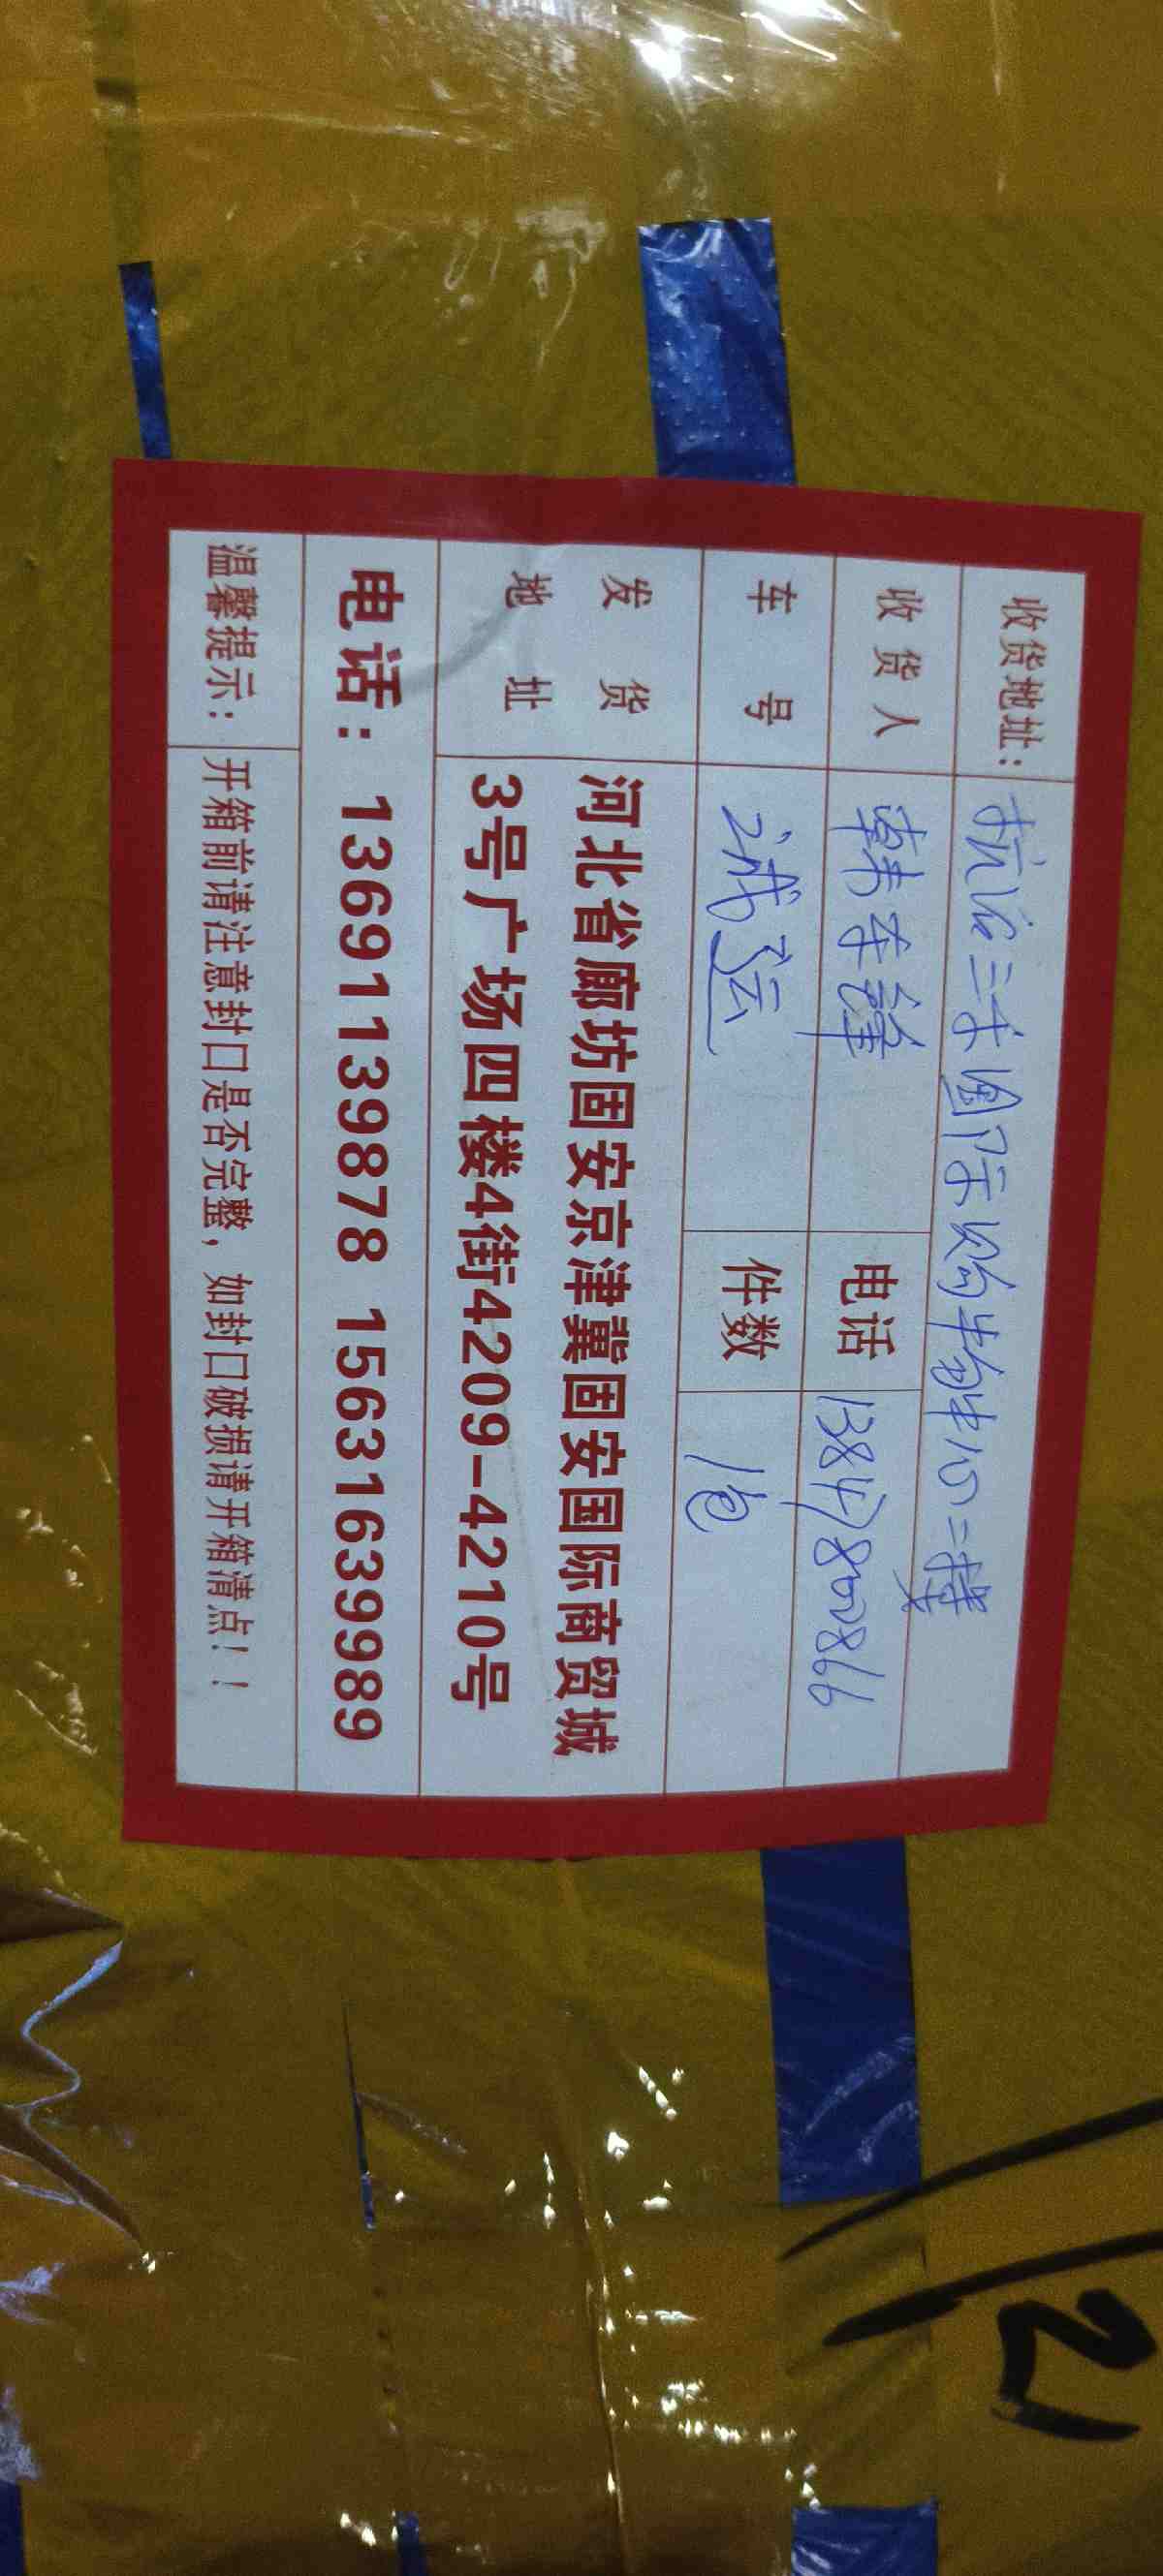 收货地址： 杭治三千国际购物中心二楼
收货人 韩冬锋 电话 13847802866
车号 诚运 件数 1包
发货地址 河北省廊坊固安京津冀固安国际商贸城
3号广场四楼4街4209-4210号
电话：13691139878 15631639989
温馨提示： 开箱前请注意封口是否完整，如封口破损请开箱清点！！